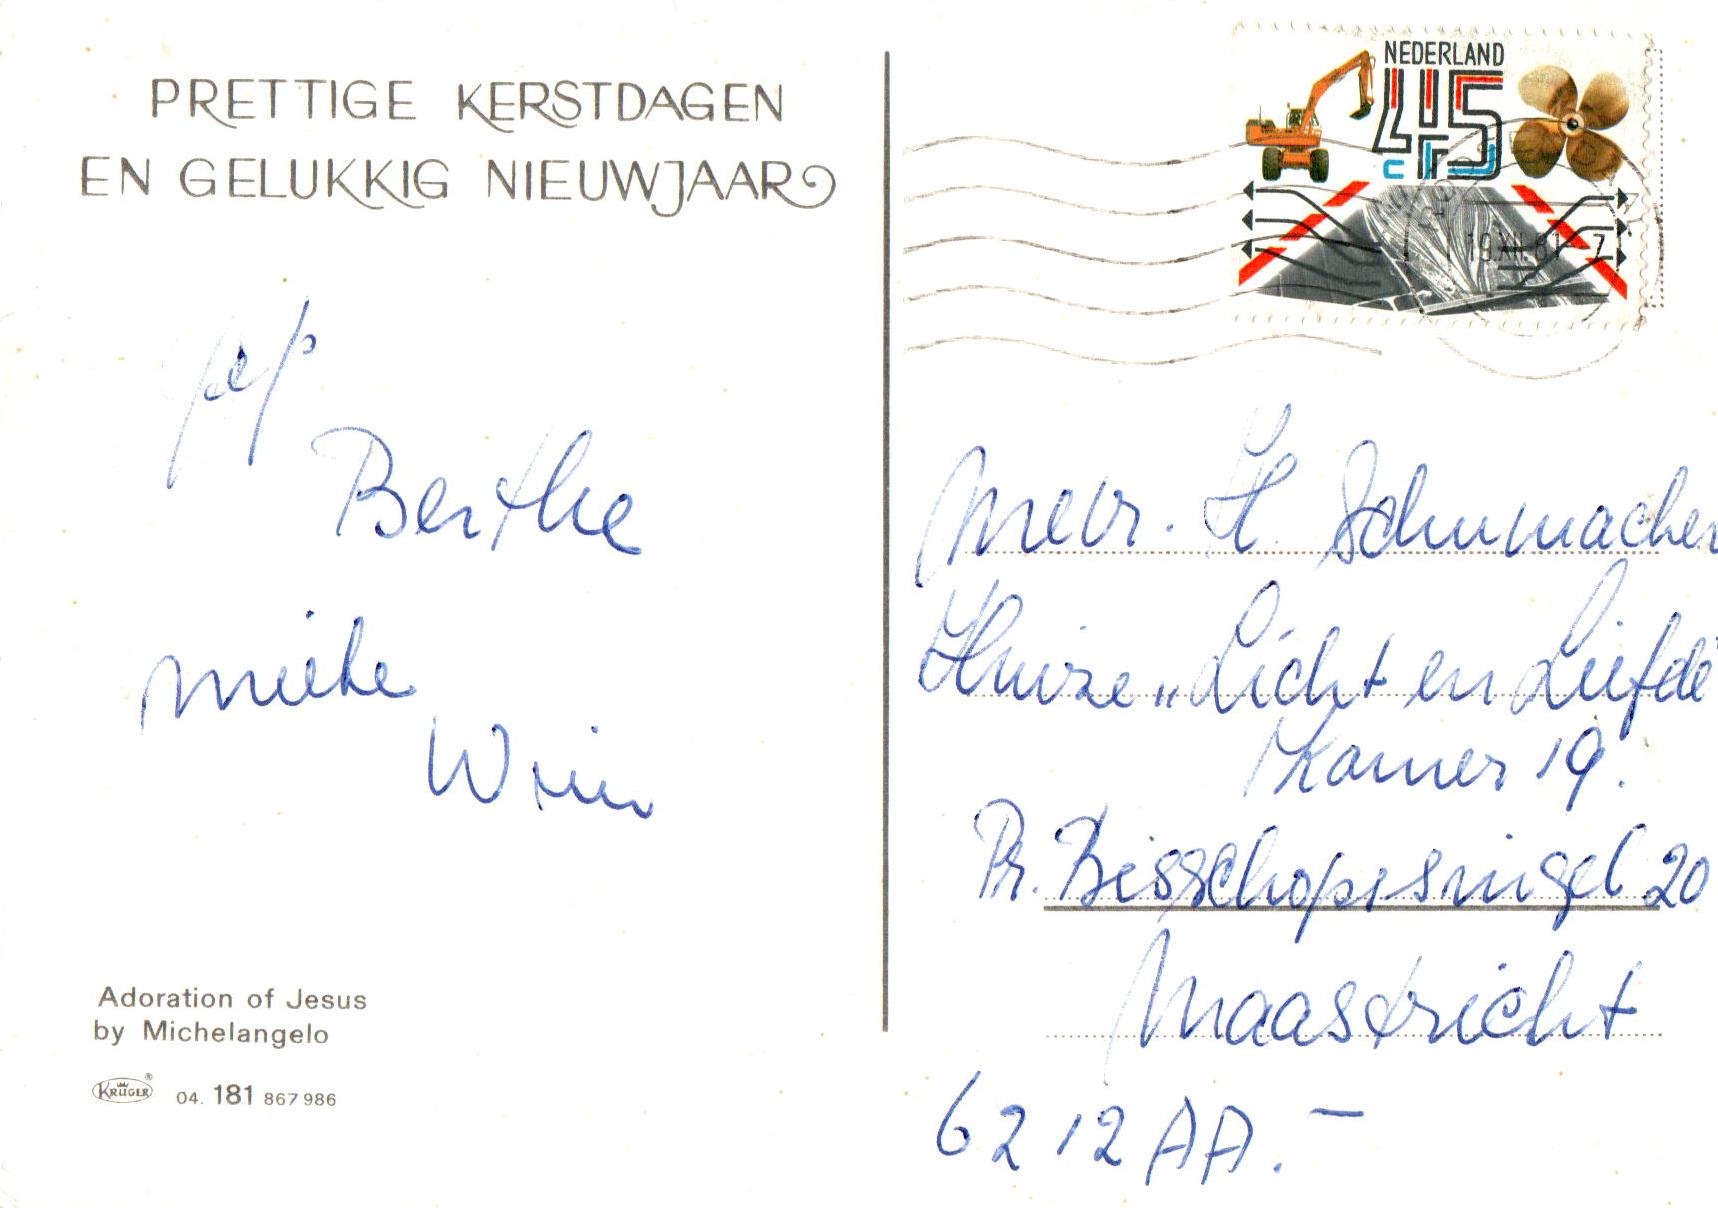 PRETTIGE KERSTDAGEN
EN GELUKKIG NIEUWJAAR
Berthe
Mieke
Wim
Adoration of Jesus
by Michelangelo
KRÜGER® 04. 181 867 986
NEDERLAND
45
c
19.XII.81-7
Mevr. H Schumacher
Huize „Licht en Liefde"
Kamer 19.
Pr. Bisschopssingel 20
Maastricht
6212 AA. —